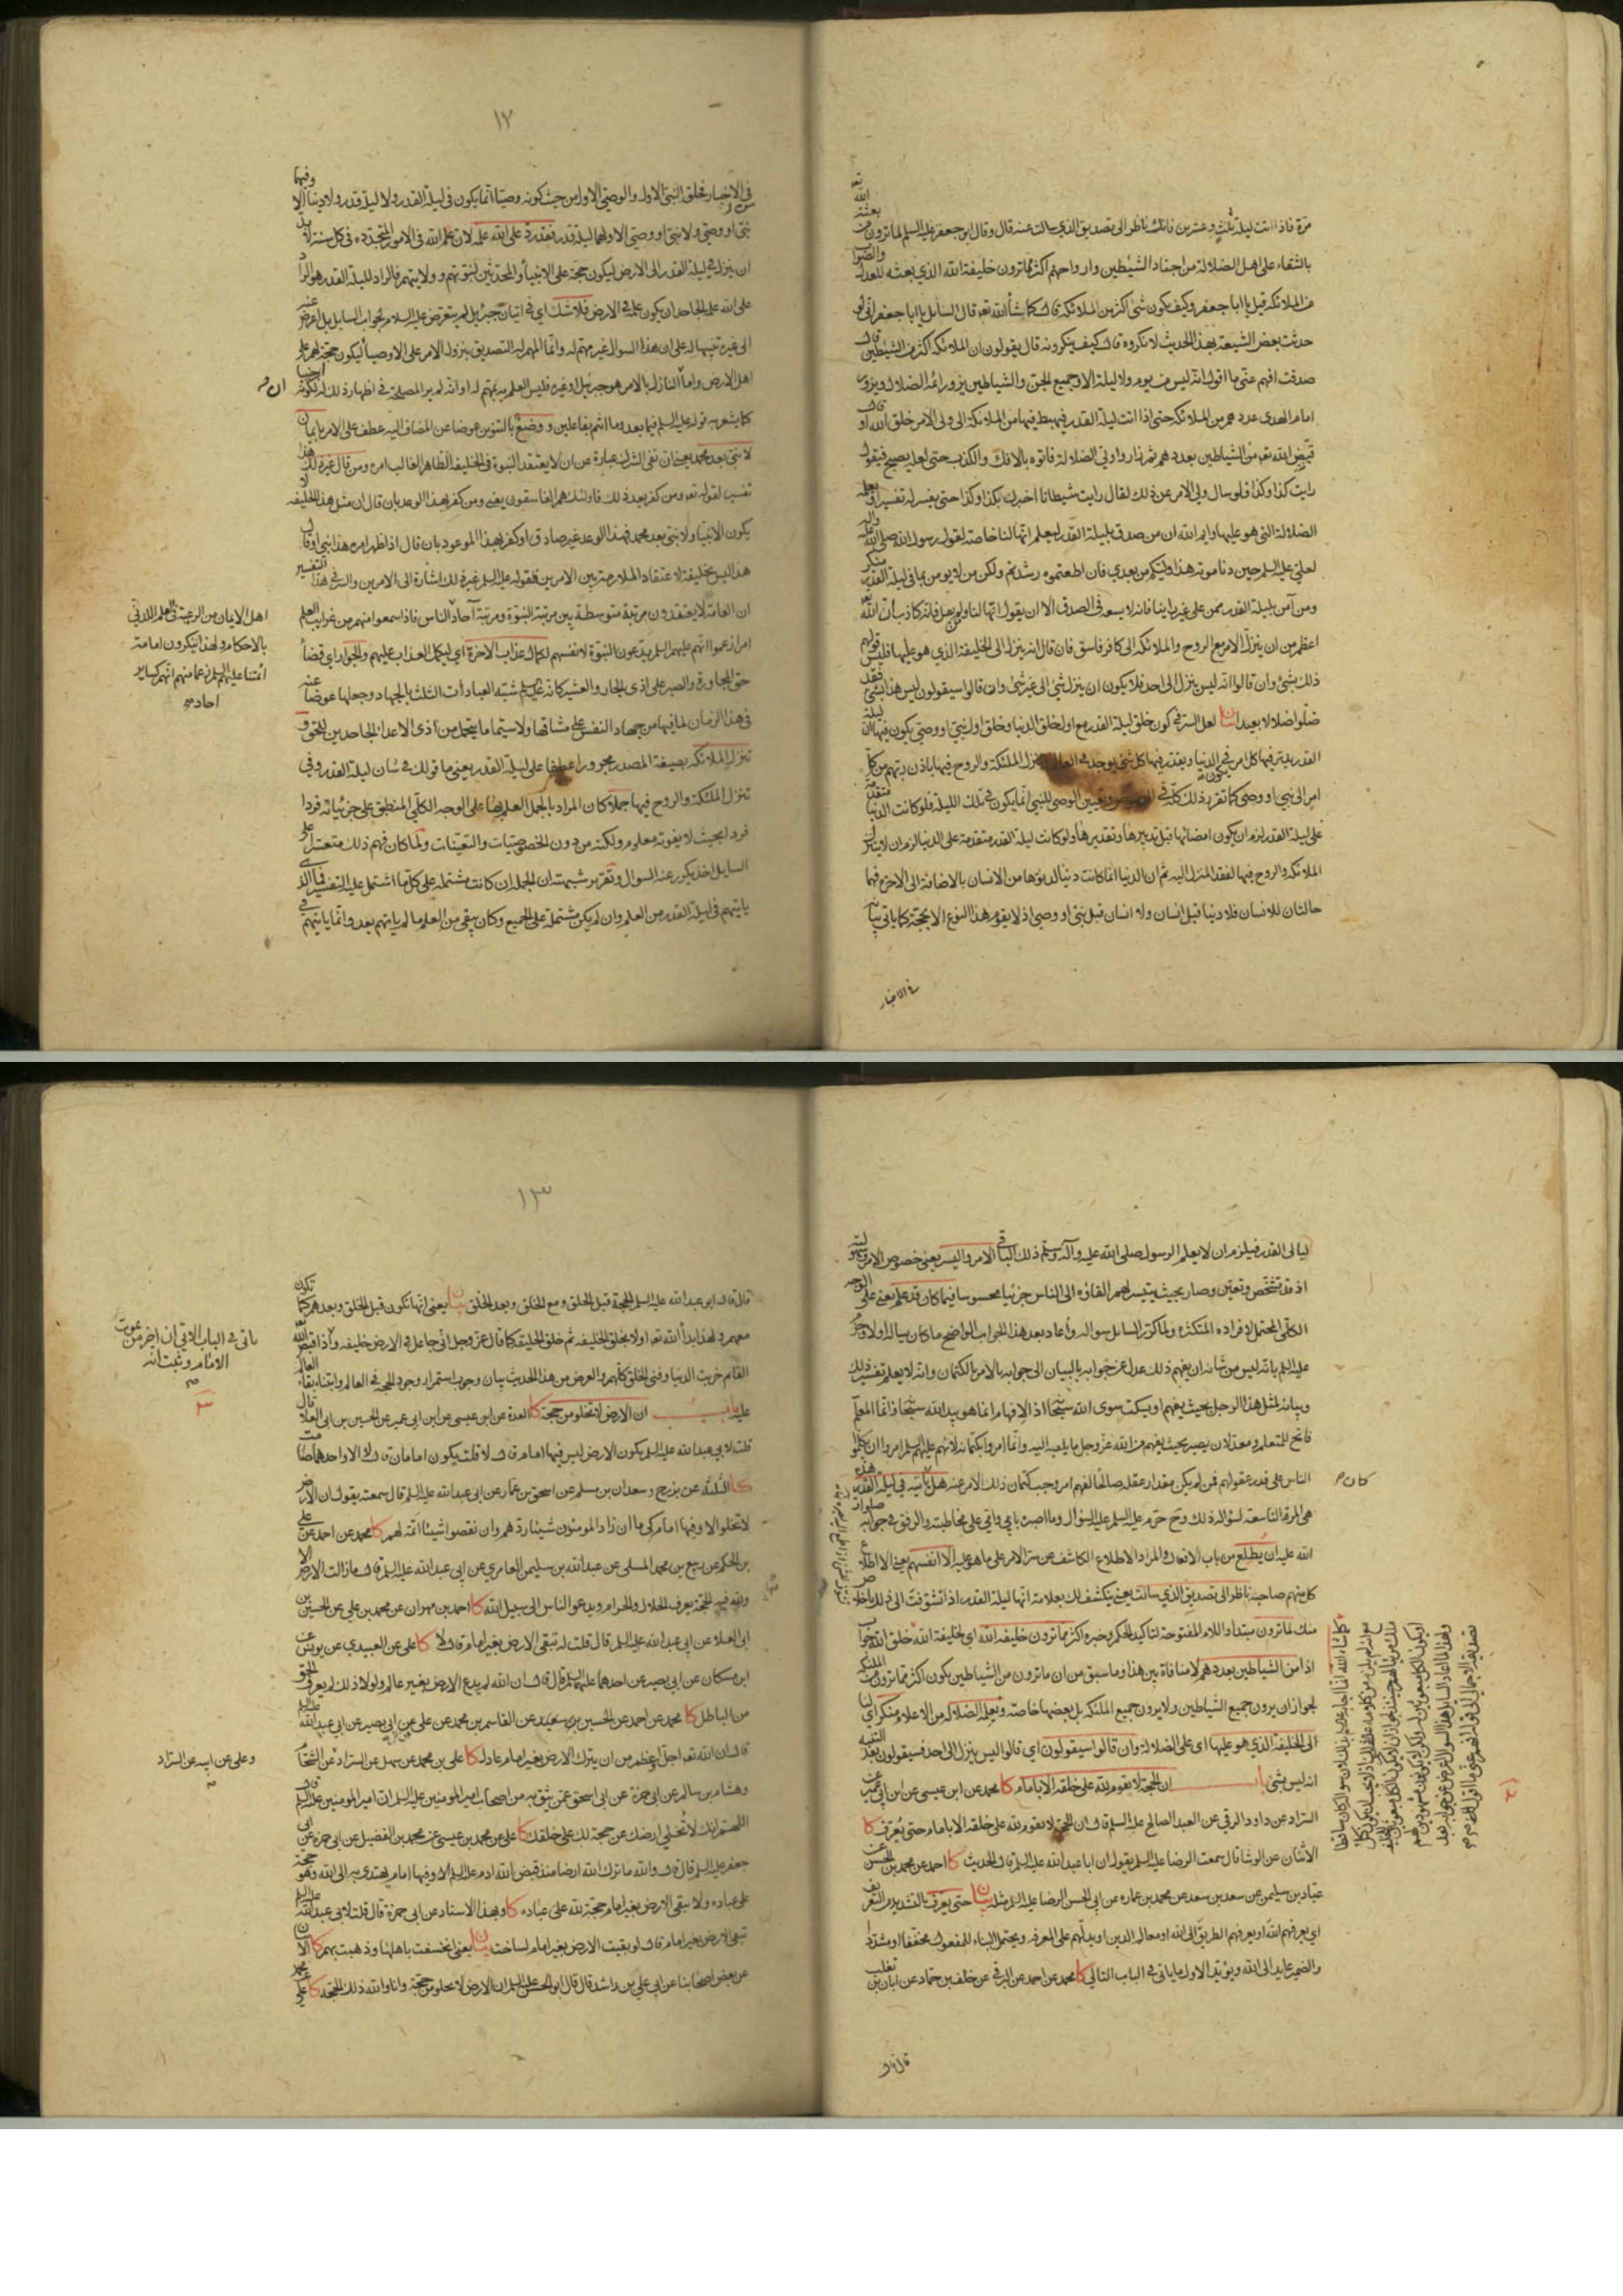 مرة فاذا اتت ليلة ثلث وعشرين فانك ناظر الى تصديق الذي سالت عنه قال وقال ابو جعفر عليه السلم لما ترون من بعثه الله تعه
بالشقاء على اهل الضلالة من اجناد الشياطين وارواحهم اكثر مما ترون خليفة الله الذي بعثه للعدل والصواب
من الملائكة قيل يا ابا جعفر وكيف يكون شئ اكثر من الملائكة قال كما شاء الله تعه قال السائل يا ابا جعفر اني لو
حدثت بعض الشيعة بهذا الحديث لانكروه قال كيف ينكرونه قال يقولون ان الملائكة اكثر من الشياطين قال
صدقت افهم عني ما اقول انه ليس من يوم ولا ليلة الا وجميع الجن والشياطين يزور ائمة الضلال ويزور
امام الهدى عددهم من الملائكة حتى اذا اتت ليلة القدر فيهبط فيها من الملائكة الى ولي الامر خلق الله او قال
قيض الله تعه من الشياطين بعددهم ثم زاروا ولي الضلالة فاتوه بالافك والكذب حتى لعله يصبح فيقول
رايت كذا وكذا فلو سال ولي الامر عن ذلك لقال رايت شيطانا اخبرك بكذا وكذا حتى يفسر له تفسيرا ويعلمه
الضلالة التي هو عليها وايم الله ان من صدق بليلة القدر ليعلم انها لنا خاصة لقول رسول الله صلى الله عليه واله
لعلي عليه السلم حين دنا موته هذا وليكم من بعدي فان اطعتموه رشدتم ولكن من لا يؤمن بما في ليلة القدر منكر
ومن آمن بليلة القدر ممن على غير راينا فانه لا يسعه في الصدق الا ان يقول انها لنا ومن لم يقل فانه كاذب ان الله تعه
اعظم من ان ينزل الامر مع الروح والملائكة الى كافر فاسق فان قال انه ينزل الى الخليفة الذي هو عليها فليس قولهم
ذلك بشئ وان قالوا انه ليس ينزل الى احد فلا يكون ان ينزل شئ الى غير شئ وان قالوا سيقولون ليس هذا بشئ فقد
ضلوا ضلالا بعيدا بيان لعل السر في كون خلق ليلة القدر مع اول خلق الدنيا وخلق اول نبي او وصي يكون فيها ان ليلة
القدر يدبر فيها كل امر في الدنيا ويقدر فيها كل شئ يوجد في العالم وتنزل الملئكة والروح فيها باذن ربهم من كل
امر الى نبي او وصي كما تقرر ذلك كله في النصوص وتعيين الوصي للنبي انما يكون في تلك الليلة فلو كانت الدنيا متقدمة
على ليلة القدر لزم ان يكون امضائها قبل تدبيرها وتقديرها ولو كانت ليلة القدر متقدمة على الدنيا لزم ان لا يتنزل
الملائكة والروح فيها لفقد المنزل اليه ثم ان الدنيا انما كانت دنيا لدنوها من الانسان بالاضافة الى الاخرة فهما
حالتان للانسان فلا دنيا قبل انسان ولا انسان قبل نبي او وصي اذ لا يقوم هذا النوع الا بحجة كما ياتي بيانه
في الاخبار
١٢
في الاخبار فخلق النبي الاول والوصي الاول من حيث كونه وصيا انما يكون في ليلة القدر ولا ليلة قدر ولا دنيا الا وفيها
نبي او وصي ولا نبي او وصي الا ولهما ليلة قدر فقد رد على الله علمه لان علم الله في الامور المتجددة في كل سنة لا بد
ان ينزل في ليلة القدر الى الارض ليكون حجة على الانبياء والمحدثين لنبوتهم وولايتهم فالراد لليلة القدر هو الراد
على الله علمه الجاحد ان يكون علمه في الارض فلا شك اي في اتيان جبرئيل لم يتعرض عليه السلام لجواب السايل بل اعرض عنه
الى غيره تنبيها له على ان هذا السوال غير مهم له وانما المهم له التصديق بنزول الامر على الاوصياء ليكون حجة لهم على
اهل الارض واما ان النازل بالامر هو جبرئيل او غيره فليس العلم به بمهم له او انه لم ير المصلحة في اظهار ذلك له لكونه اجنبيا
كما يشعر به قوله عليه السلم فيما بعد وما انتم بفاعلين ووضع بالتنوين عوضا عن المضاف اليه عطف على الامر بايمان
لا نبي بعد محمد يعني ان نفى الشرك عبارة عن ان لا يعتقد النبوة في الخليفة الظاهر الغالب امره ومن قال غير ذلك هذا
تفسير لقوله تعه ومن كفر بعد ذلك فاولئك هم الفاسقون يعني ومن كفر بهذا الوعد بان قال ان مثل هذا الخليفة لا
يكون الا نبيا ولا نبي بعد محمد فهذا الوعد غير صادق او كفر بهذا الموعود بان قال اذا ظهر امره هذا نبي او قال
هذا ليس بخليفة لاعتقاد الملازمة بين الامرين فقوله عليه السلم غير ذلك اشارة الى الامرين والسر في هذا التفسير
ان العامة لا يعتقدون مرتبة متوسطة بين مرتبة النبوة ومرتبة آحاد الناس فاذا سمعوا منهم من غرايب العلم
امرا زعموا انهم عليهم السلم يدعون النبوة لانفسهم لكمال عذاب الاخرة اي ليكمل العذاب عليهم والجوار اي قضاء
حق المجاورة والصبر على اذى الجار والعشير كانه عليه السلم شبه العبادات الثلث بالجهاد وجعلها عوضا عنه
في هذا الزمان لما فيها من جهاد النفس على مشاقها ولا سيما ما يتحمل من اذى الاعداء الجاحدين للحق و
تنزل الملائكه بصيغة المصدر مجرورا عطفا على ليلة القدر يعني ما قولك في شان ليلة القدر وفي
تنزل الملئكة والروح فيها جملا كان المراد بالجمل العلم بها على الوجه الكلي المنطبق على جزئياته فردا
فردا بحيث لا يفوته معلوم ولكنه من دون الخصوصيات والتعينات ولما كان فهم ذلك متعسرا على
السايل اخذ يكرر عنه السوال وتقرير شبهته ان الجملة ان كانت مشتملة على كل ما اشتمل عليه التفسير فما الذي
ياتيهم في ليلة القدر من العلم وان لم يكن مشتملة على الجميع وكان يبقى من العلم ما لم ياتهم بعد وانما ياتيهم في
ان
اهل الايمان من الرعية في العلم اللدني
بالاحكام ولهذا ينكرون امامة
ائمتنا عليهم السلم زعما منهم انهم كساير
احادهم
ليالي القدر فيلزم ان لا يعلم الرسول صلى الله عليه وآله وسلم ذلك الباقي الامر واليسر يعني خصوص الامر
اذ قد تشخص وتعين وصار بحيث يتيسر لهم القاؤه الى الناس جزئيا محسوسا فيما كان قد علم يعني على الوجه
الكلي المحتمل لافراده المتكثرة ولما كرر السايل سواله واعاد بعد هذا الجواب الواضح ما كان يساله اولا وعرف
عليه السلم بانه ليس من شانه ان يفهم ذلك عدل عن جوابه بالبيان الى جوابه بالامر بالكتمان وانه لا يعلم تفسير ذلك
وبيانه لمثل هذا الرجل بحيث يفهم او يسكت سوى الله سبحانه اذ الافهام انما هو بيد الله سبحانه وانما المعلم
فاتح للمتعلم ومعد لان يصير بحيث يفهم من الله عز وجل ما يلهمه اليه وانما امروا بكتمانه لانهم عليهم السلم امروا ان يكلموا
الناس على قدر عقولهم فمن لم يكن مقدار عقله صالحا لفهم امر وجب كتمان ذلك الامر عنه هل يأتيه في ليلة القدر هذه
هي المرة التاسعة لسؤاله ذلك وح حرم عليه السلم عليه السؤال وما اصبره بابي وامي على مخاطبته والرفق في جوابه صلوات
الله عليه ان يطلع من باب الافعال والمراد الاطلاع الكاشف عن سر الامر على ما هو عليه الا انفسهم يعني الا اطلاع
كل منهم صاحبه ناظر الى تصديق الذي سالت يعني ينكشف لك بعلامة انها ليلة القدر اذا تشوقت الى ذلك
منك لما ترون مبتدا واللام المفتوحة لتاكيد الحكم وخبره اكثر مما ترون خليفة الله اي لخليفة الله خلق الله جواب
اذا من الشياطين بعددهم لا منافاة بين هذا وما سبق من ان ما ترون من الشياطين يكون اكثر مما ترون من الملئكة
لجواز ان يرون جميع الشياطين ولا يرون جميع الملئكة بل بعضها خاصة ويعلمه الضلالة من الاعلام منكر اي لنا
الى الخليفة الذي هو عليها اي على الضلالة وان قالوا سيقولون اي قالوا ليس ينزل الى احد فسيقولون بعد التنبيه
انه ليس بشئ باب ان الحجة لا يقوم لله على خلقه الا بامام كا محمد عن ابن عيسى عن ابن ابي عمير عن
السراد عن داود الرقي عن العبد الصالح عليه السلم قال ان الحجة لا يقوم لله على خلقه الا بامام حتى يعرف كا
الاثنان عن الوشا قال سمعت الرضا عليه السلم يقول ان ابا عبد الله عليه السلم قال الحديث كا احمد عن محمد بن الحسن عن
عباد بن سليمن عن سعد بن سعد عن محمد بن عماره عن ابي الحسن الرضا عليه السلم مثله بيان حتى يعرف بالتشديد من التعريف
اي يعرفهم الله او يعرفهم الطريق الى الله او معالم الدين او يدلهم على المعرفه ويحتمل البناء للمفعول مخففا او مشددا
والضمير عايد الى الله ويؤيد الاول ما ياتي في الباب التالي كا محمد عن احمد عن البرقي عن خلف بن حماد عن ابان بن تغلب
قال قال
كان
١٣
قال قال ابو عبد الله عليه السلم الحجة قبل الخلق ومع الخلق وبعد الخلق بيان يعني انها تكون قبل الخلق وبعدهم كما تكون
معهم ولهذا بدأ الله تعه اولا بخلق الخليفه ثم خلق الخليقة كما قال عز وجل اني جاعل في الارض خليفه واذا قبض الله
القائم خربت الدنيا وفنى الخلق كلهم والغرض من هذا الحديث بيان وجوب استمرار وجود الحجة في العالم وابتناء بقاء العالم
عليه باب ان الارض لا تخلو من حجة كا العدة عن ابن عيسى عن ابن ابي عمير عن الحسين بن ابي العلا قال
قلت لابي عبد الله عليه السلم يكون الارض ليس فيها امام قال لا قلت يكون امامان قال لا الا واحدهما صامت
كا الثلثة عن بزرج وسعدان بن مسلم عن اسحق بن عمار عن ابي عبد الله عليه السلم قال سمعته يقول ان الارض
لا تخلو الا وفيها امام كي ما ان زاد المومنون شيئا ردهم وان نقصوا شيئا اتمه لهم كا محمد عن احمد عن علي
بن الحكم عن ربيع بن محمد المسلي عن عبد الله بن سليمن العامري عن ابي عبد الله عليه السلم قال ما زالت الارض الا
ولله فيها الحجة يعرف الحلال والحرام ويدعو الناس الى سبيل الله كا احمد بن مهران عن محمد بن علي عن الحسين بن
ابي العلاء عن ابي عبد الله عليه السلم قال قلت له تبقى الارض بغير امام قال لا كا علي عن العبيدي عن يونس عن
ابن مسكان عن ابي بصير عن احدهما عليهما السلم قال قال ان الله لم يدع الارض بغير عالم ولولا ذلك لم يعرف الحق
من الباطل كا محمد عن احمد عن الحسين بن سعيد عن القاسم بن محمد عن علي عن ابي بصير عن ابي عبد الله عليه السلم
قال ان الله تعه اجل واعظم من ان يترك الارض بغير امام عادل كا علي بن محمد عن سهل عن السراد عن الشحام
وهشام بن سالم عن ابي حمزة عن ابي اسحق عمن يثق به من اصحاب امير المومنين عليه السلم ان امير المومنين عليه السلم قال
اللهم انك لا تخلي ارضك عن حجة لك على خلقك كا علي عن محمد بن عيسى عن محمد بن الفضيل عن ابي حمزه عن ابي
جعفر عليه السلم قال قال والله ما ترك الله ارضا منذ قبض الله ادم عليه السلم الا وفيها امام يهتدى به الى الله وهو حجته
على عباده ولا تبقى الارض بغير امام حجة لله على عباده كا وبهذا الاسناد عن ابي حمزة قال قلت لابي عبد الله عليه السلم
تبقى الارض بغير امام قال لو بقيت الارض بغير امام لساخت بيان يعني انخسفت باهلها وذهبت بهم كا الاثنان
عن بعض اصحابنا عن ابي علي بن راشد قال قال ابو الحسن عليه السلم ان الارض لا تخلو من حجة وانا والله ذلك الحجة كا علي عن محمد
ياتي في الباب الاتي ان اخر من يموت
الامام ويثبت انه
وعلي عن ابيه عن السراد